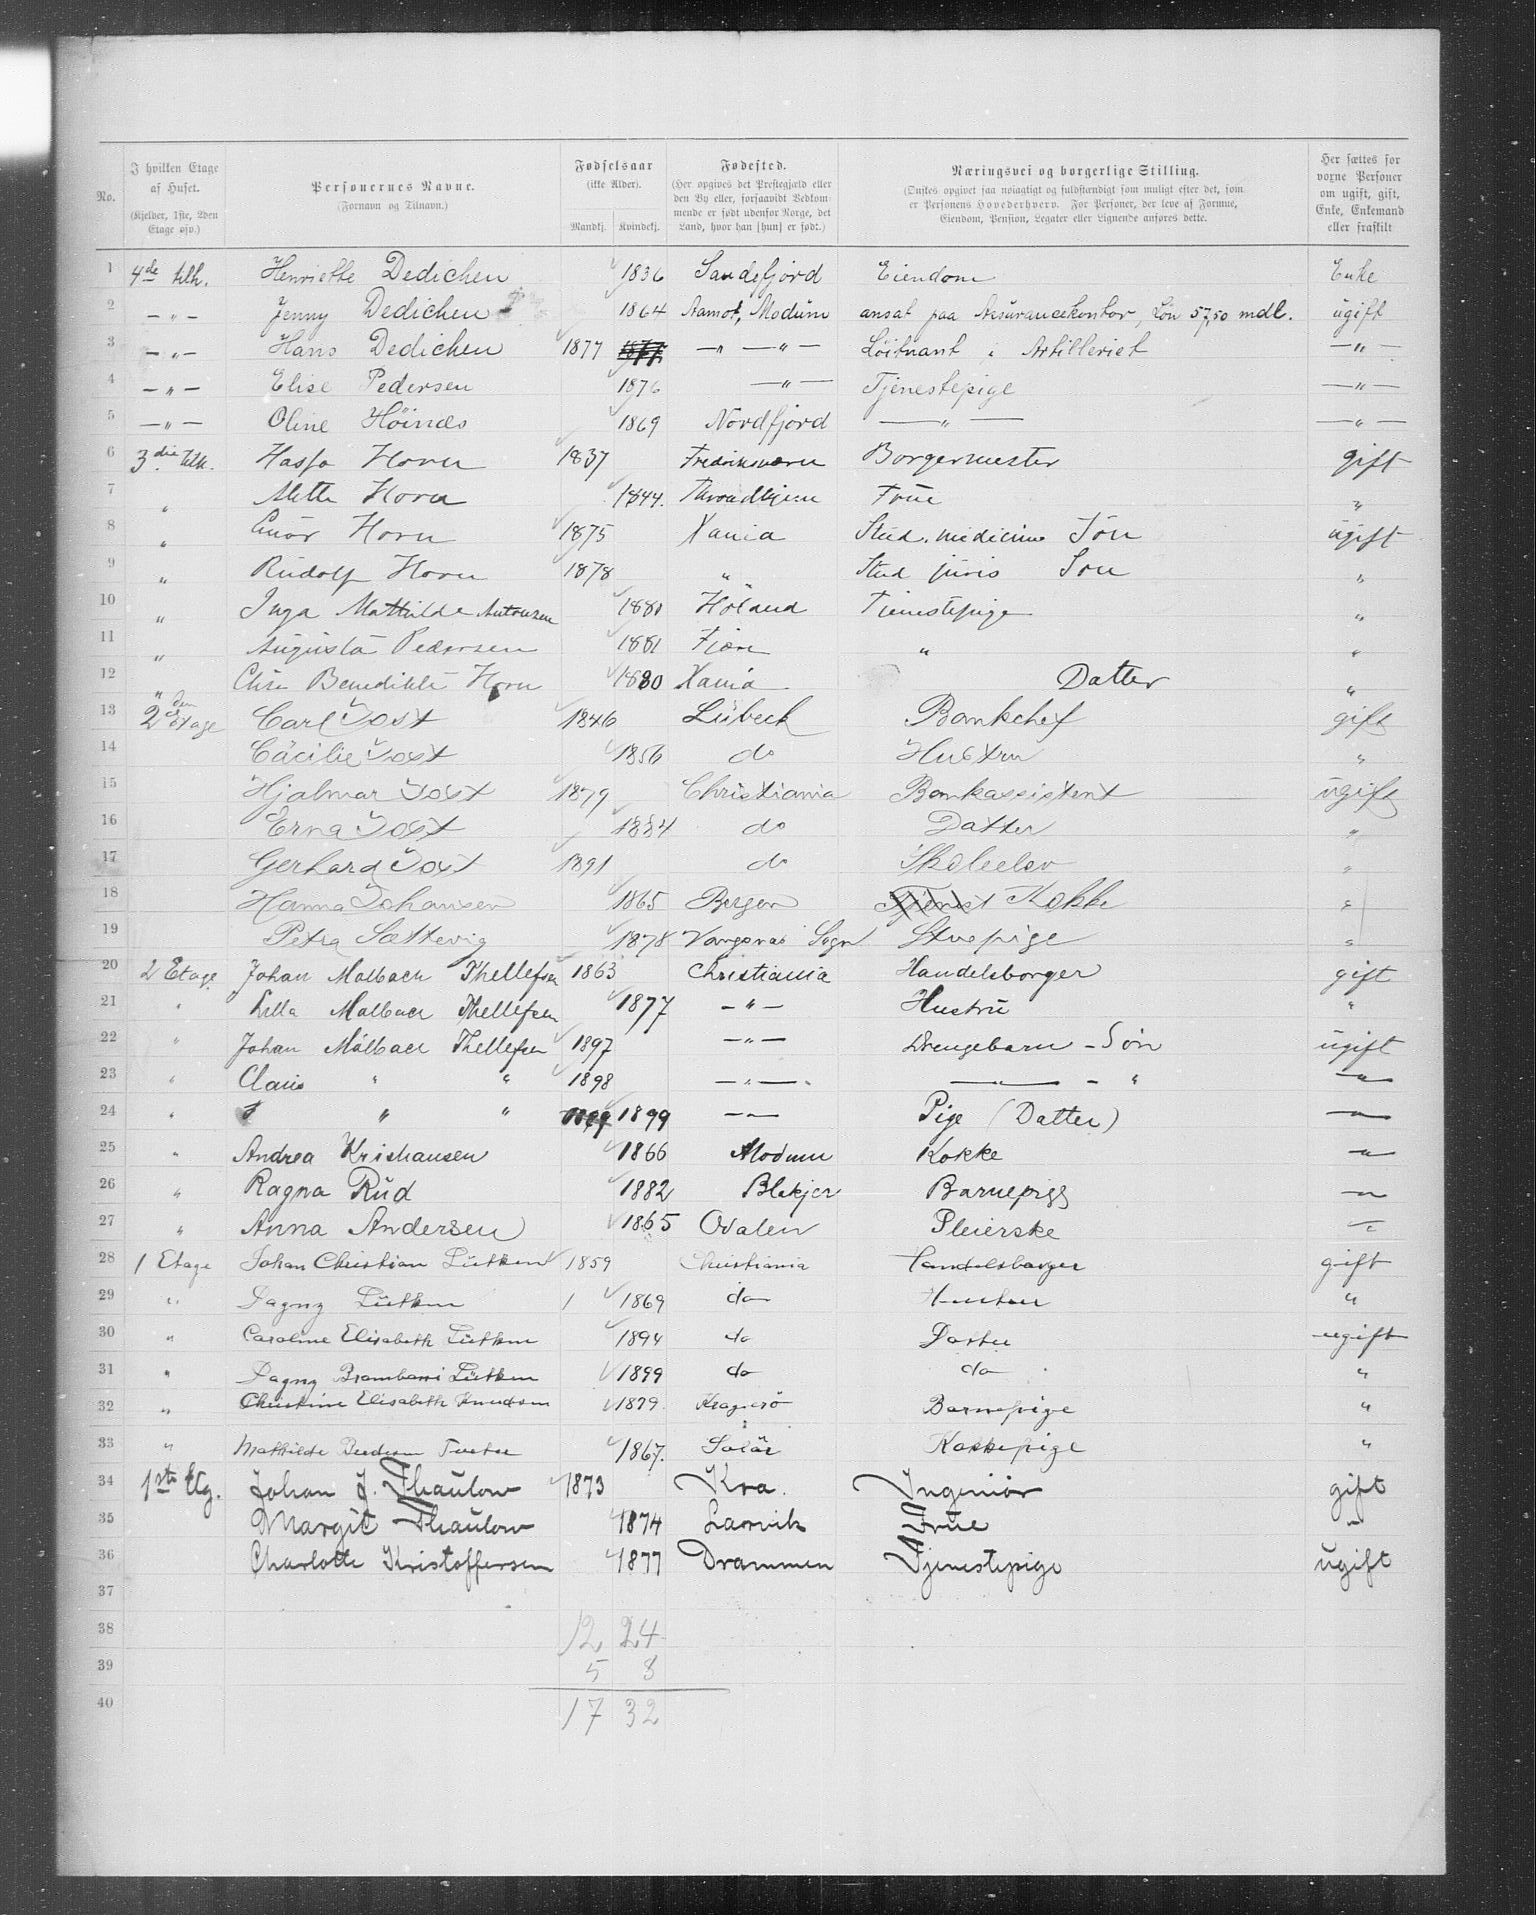 No. | I hvilken Etage af Huset. (Kjelder, 1ste, 2den Etage osv.) | Personernes Navne. (Fornavn og Tilnavn.) | Fødselsaar (ikke Alder). Mandkj. Kvindekj. | Fødested. (Her opgives det Præstegjæld eller den By eller, forsaavidt Vedkommende er født udenfor Norge, det Land, hvor han [hun] er født.) | Næringsvei og borgerlige Stilling. (Ønskes opgivet saa nøiagtigt og fuldstændigt som muligt efter det, som er Personens Hovederhverv. For Personer, der leve af Formue, Eiendom, Pension, Legater eller Lignende anføres dette. | Her sættes for voxne Personer om ugift, gift, Enke, Enkemand eller fraskilt
1 4de Henriette Dedichen 1836 Sandefjord Eiendom Enke
2 — " — Jenny Dedichen 1864 Aamot, Modum ansat paa Assurancekontor, Lön 57,50 mdl. ugift
3 — " — Hans Dedichen 1877 — " — " — Löitnant i Artilleriet — " —
4 — " — Elise Pedersen 1876 — " — Tjenestepige — " —
5 — " — Oline Höinæs 1869 Nordfjord — " — — " —
6 3die Horn 1837 Fredriksværn Borgermester gift
7 " Mette Horn 1844. Throndhjem Frue "
8 " Horn 1875 Xania Stud. medicine Sön ugift
9 " Rudolf Horn 1878 " Stud juris Sön "
10 " Inga Mathilde Antonsen 1880 Höland Tjenestepige "
11 " Augusta Pedersen 1881 " "
12 " Elise Benedikte Horn 1880 Xania Datter "
13 2den Etage Carl Jost 1846 Lübeck Bankchef gift
14 Cäcilie Jost 1856 do Hustru "
15 Hjalmar Jost 1879 Christiania Bankassistent ugift
16 Erna Jost 1884 do Datter "
17 Gerhard Jost 1891 do Skoleelev "
18 Hanna Johansen 1865 Bergen Tjenest Kokke "
19 Petra Sættevig 1878 Vangsnæs Sogn Stuepige "
20 2 Etage Johan Malbach Thellefsen 1863 Christiania Handelsborger gift
21 " Lilla Malbach Thellefsen 1877 — " — Hustru "
22 " Johan Malbach Thellefsen 1897 — " — Drengebarn – Sön ugift
23 " Claus " " 1898 — " — — – " — " —
24 " " " 1899 1899 — " — Pige (Datter) — " —
25 " Andrea Kristiansen 1866 Modum Kokke — " —
26 " Ragna Rud 1882 Blakjer Barnepige — " —
27 " Anna Andersen 1865 Odalen Pleierske — " —
28 1 Etage Johan Christian Lütken 1859 Christiania Handelsborger gift
29 " Dagny Lütken 1869 do Hustru "
30 " Caroline Elisabeth Lütken 1894 do Datter ugift
31 " Dagny Lütken 1899 do do "
32 " Christine Elisabeth Knudsen 1879 Kragerö Barnepige "
33 " Mathilde 1867. Solör Kokkepige "
34 1ste Etg. Johan J. Thaulow 1873 Kra. Ingeniör gift
35 Margit Thaulow 1874 Laurvik Frue "
36 Charlotte Kristoffersen 1877 Drammen Tjenestepige ugift
37
38 12 24
39 5 8
40 17 32